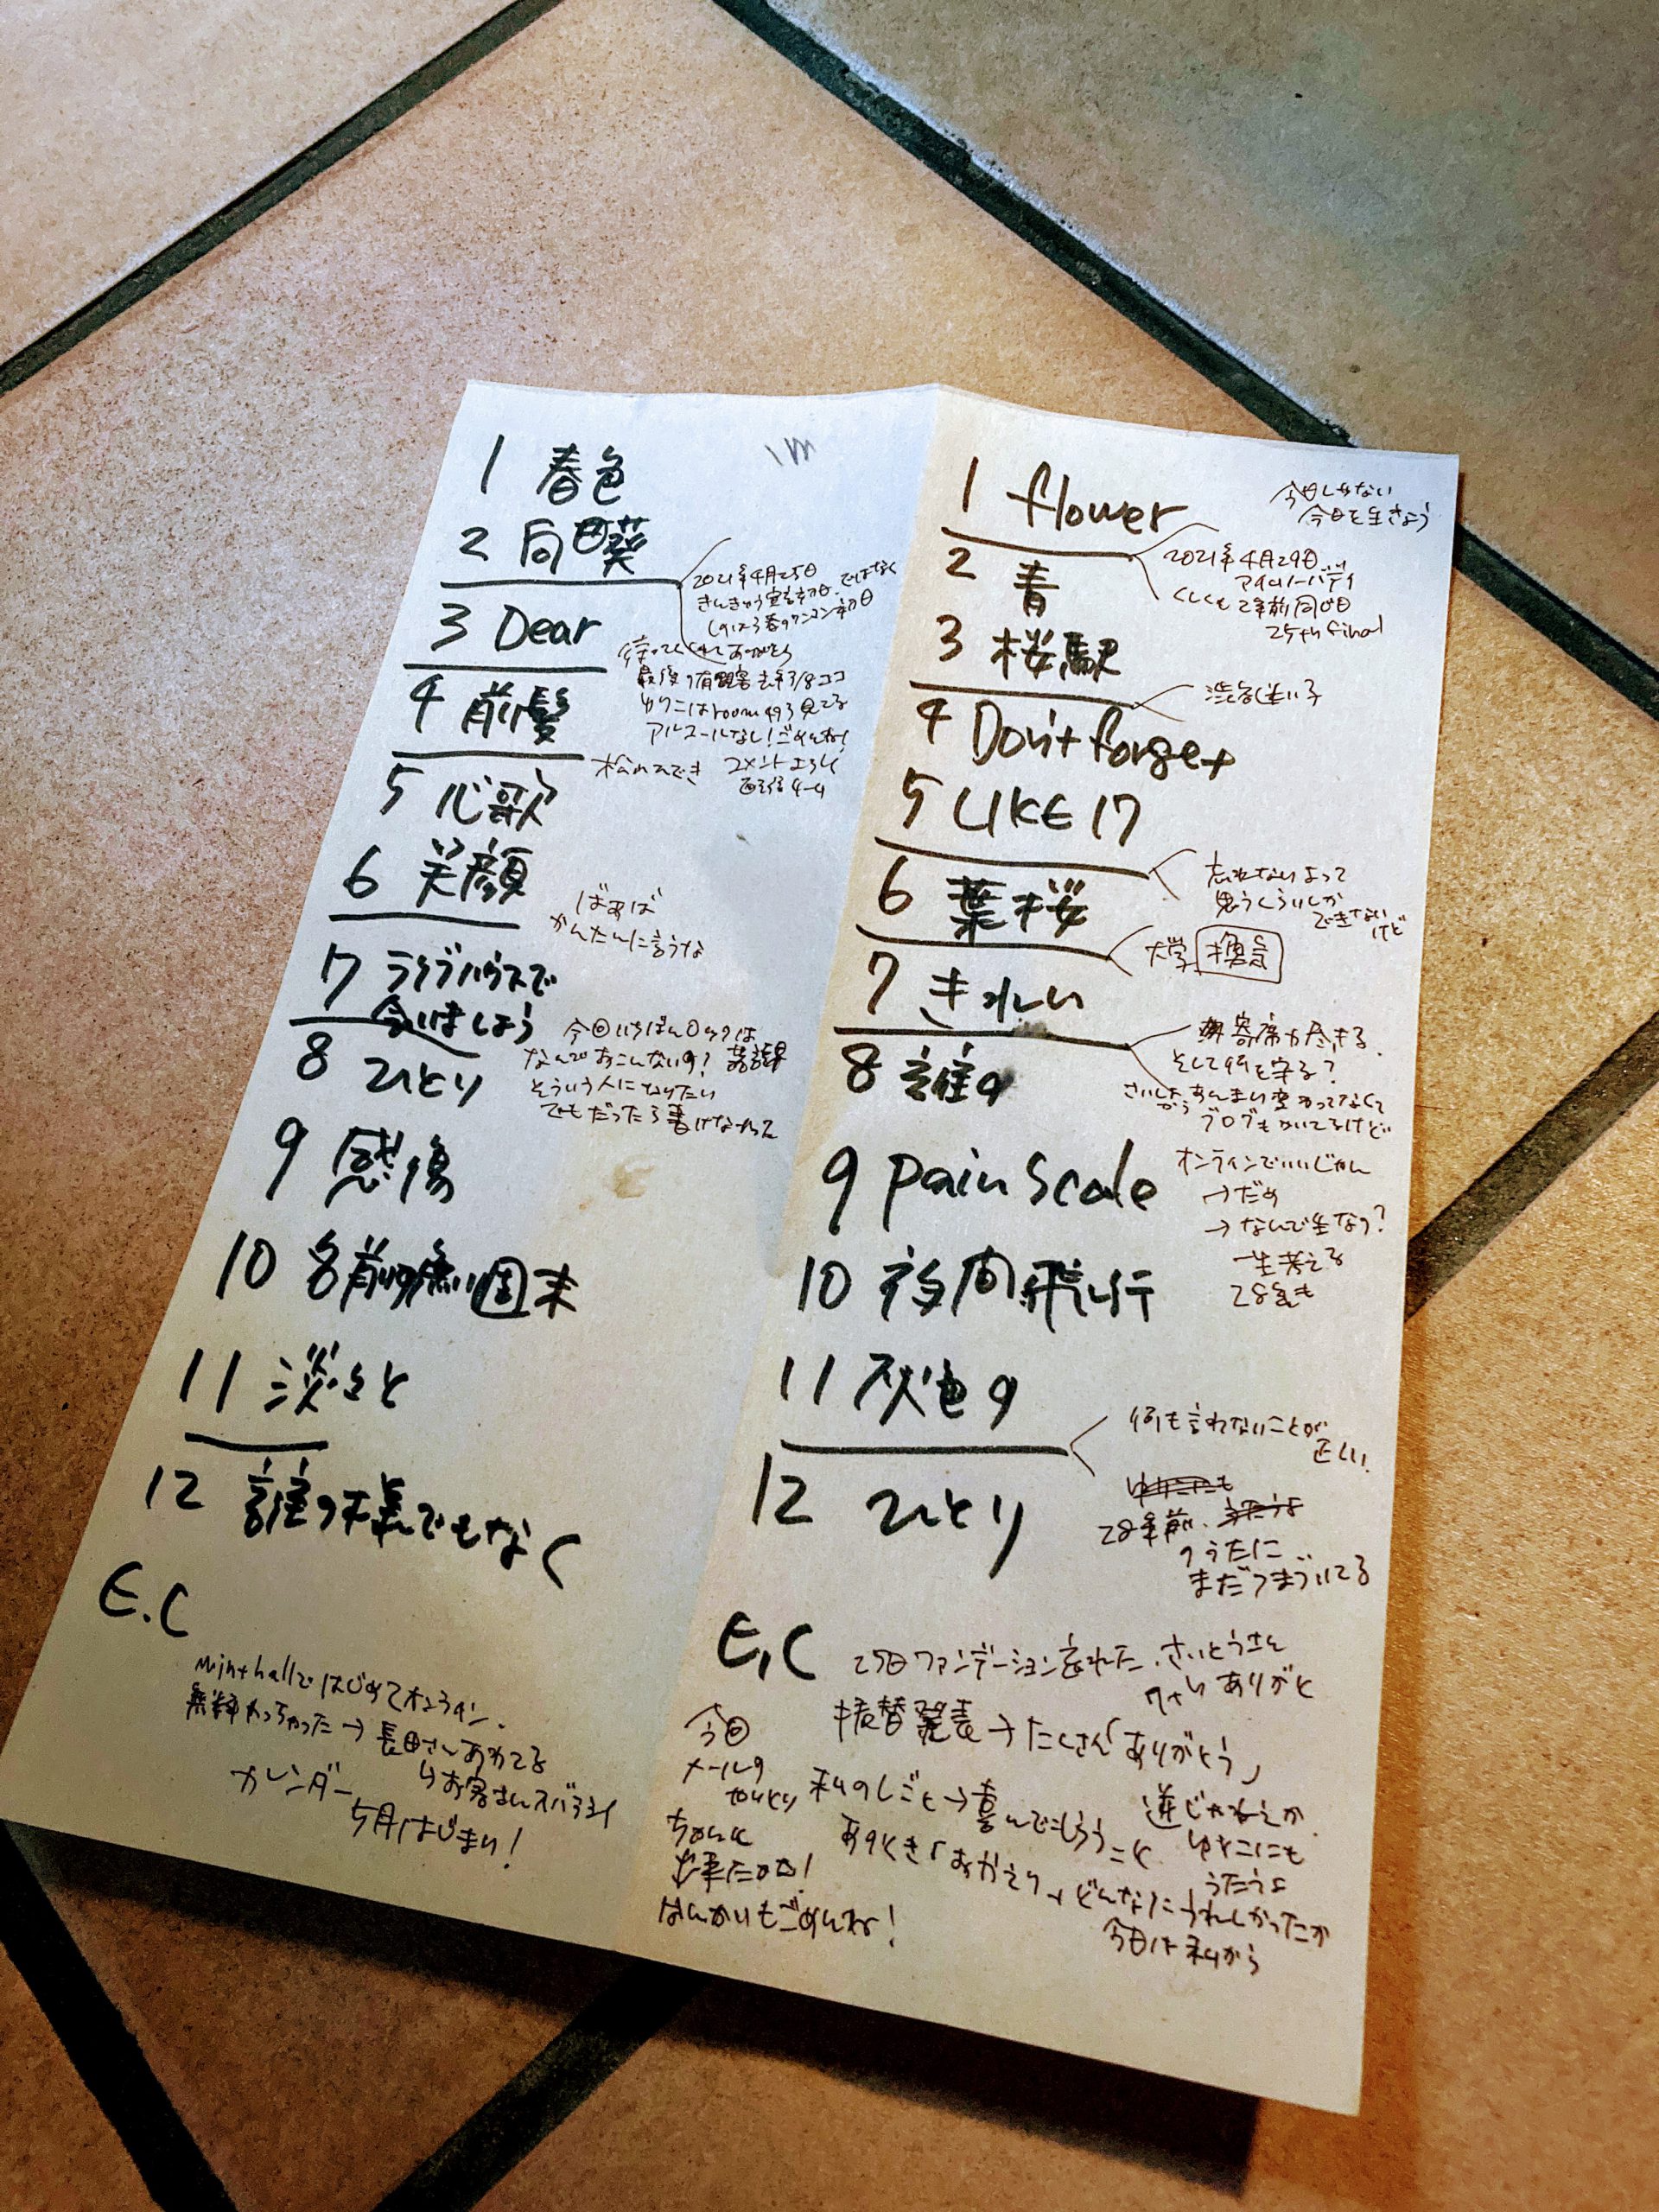 1 春色
2 向日葵
2021年4月25日
きんきゅう宣言初日ではなく
春のワンコン初日
3 Dear
待っててくれてありがとう
最後の有観客 去年3/8ココ
4 前髪
アルコールなし!ごめんね!
コメントよろしく
5 心歌
6 笑顔
ばぁば
かんたんに言うな
7 ライブハウスで
会いましょう
今回いちばんロックは
なんでおこんないの?
8 ひとり
そういう人になりたい
でもだったら書けなかった
9 感傷
10 名前の無い週末
11 淡々と
12 誰の様でもなく
E.C
Mint hallではじめてオンライン
長田さんあわてる
お客さんスバラシイ
カレンダー
5月はじまり!
1 flower
今日しかない
今日を生きよう
2021年4月29日
くしくも2年前同じ日
25th final
2 青
3 桜駅
渋谷迷い子
4 Don't forget
5 LIKE 17
忘れないよって
思うくらいしか
できないけど
6 葉桜
大学
7 きれい
寄席力尽きる
そして何を守る?
8 誰の
あんまり変わってなくて
ブログもかいてるけど
9 Pain Scale
オンラインでいいじゃん
→だめ
→なんで生なの?
一生考える
28年も
10 夜間飛行
11 灰色の
何も言わないことが
正しい
12 ひとり
28年前、
のうたに
まだつまづいてる
E.C
25日 ファンデーション忘れた、さいとうさん
ありがと
振替発表→たくさん「ありがとう」
今回
メールの
やりとり
ちゃんと
出来たかな!
なんかいもごめんね!
私のしごと→喜んでもらうこと
逆じゃねえか
あのとき「おかえり」どんなにうれしかったか
うたうよ
今日は私から